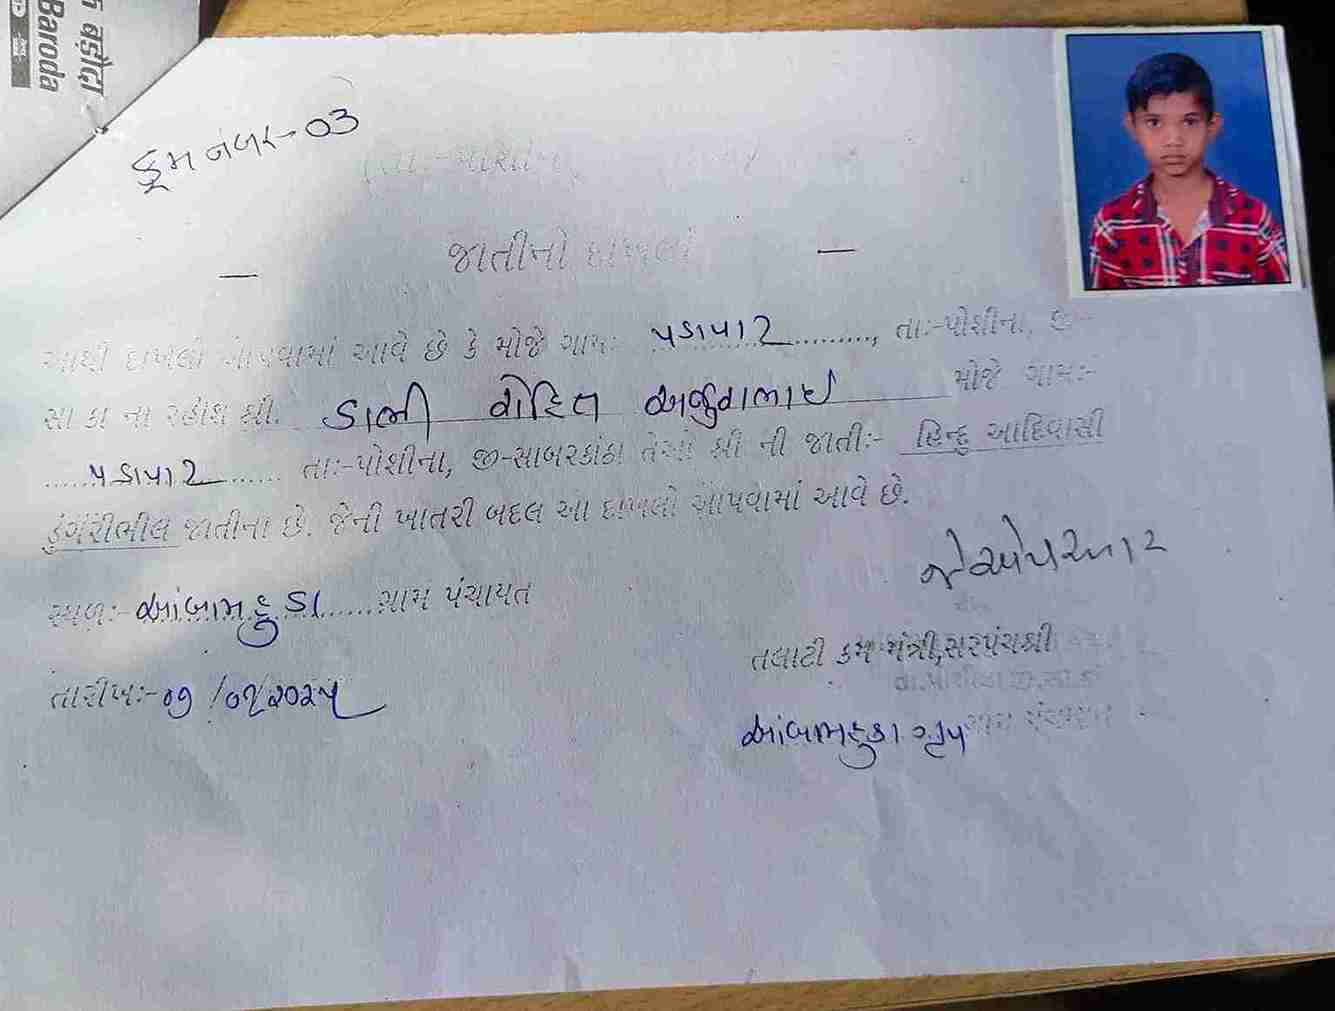 बड़ौदा
Baroda
રૂમ નંબર - 03
જાતીનો દાખલો
આથી દાખલો આપવામાં આવે છે કે મોજે ગામઃ પડાપાટ........., તાઃ-પોશીના, જી-
સા કા ના રહીશ શ્રી. ડાભી રોહિત અજુવાભાઈ મોજે ગામઃ-
.....પડાપાટ....... તાઃ-પોશીના, જી-સાબરકાંઠા તેઓ શ્રી ની જાતીઃ- હિન્દુ આદિવાસી
ડુંગરીભીલ જાતીના છે. જેની ખાતરી બદલ આ દાખલો આપવામાં આવે છે.
સ્થળઃ- આંબામહુડા......ગ્રામ પંચાયત
તલાટી કમ મંત્રી,સરપંચશ્રી
તારીખઃ- ૦૧/૦૧/૨૦૨૫
આંબામહુડા ગૃપ ગ્રામ પંચાયત